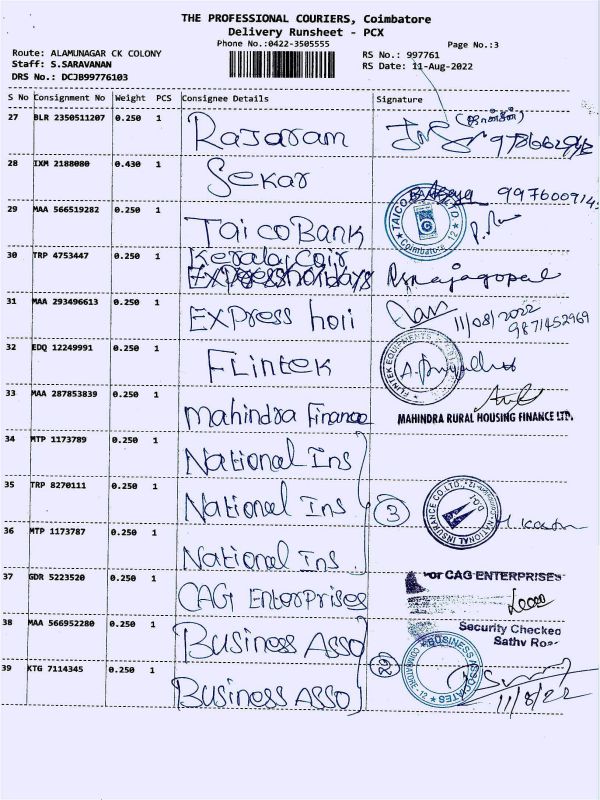 THE PROFESSIONAL COURIERS, Coimbatore
Delivery Runsheet - PCX
Phone No.:0422-3505555
Page No.:3
Route: ALAMUNAGAR CK COLONY
Staff: S.SARAVANAN
DRS No.: DCJB99776103
RS No.: 997761
RS Date: 11-Aug-2022
S No Consignment No Weight PCS Consignee Details Signature
27 BLR 2350511207 0.250 1 Rajaram
28 IXM 2188080 0.430 1 Sekar
29 MAA 566519282 0.250 1 Taico Bank
TAICO BANK Coimbatore 12
30 TRP 4753447 0.250 1 Kerala Coir
Rajagopal
31 MAA 293496613 0.250 1 Express holi
11/08/2022
9871452969
32 EDQ 12249991 0.250 1 FLintek
FLINTEK EQUIPMENTS
33 MAA 287853839 0.250 1 Mahindra Finance
MAHINDRA RURAL HOUSING FINANCE LTD.
34 MTP 1173789 0.250 1 National Ins
35 TRP 8270111 0.250 1 National Ins 3
NATIONAL INSURANCE CO.LTD.
36 MTP 1173787 0.250 1 National Ins
37 GDR 5223520 0.250 1 CAG Enterprises
For CAG ENTERPRISES
38 MAA 566952280 0.250 1 Business Asso
Security Checked
39 KTG 7114345 0.250 1 Business Asso
BUSINESS ASSOCIATES COIMBATORE - 12
11/8/22